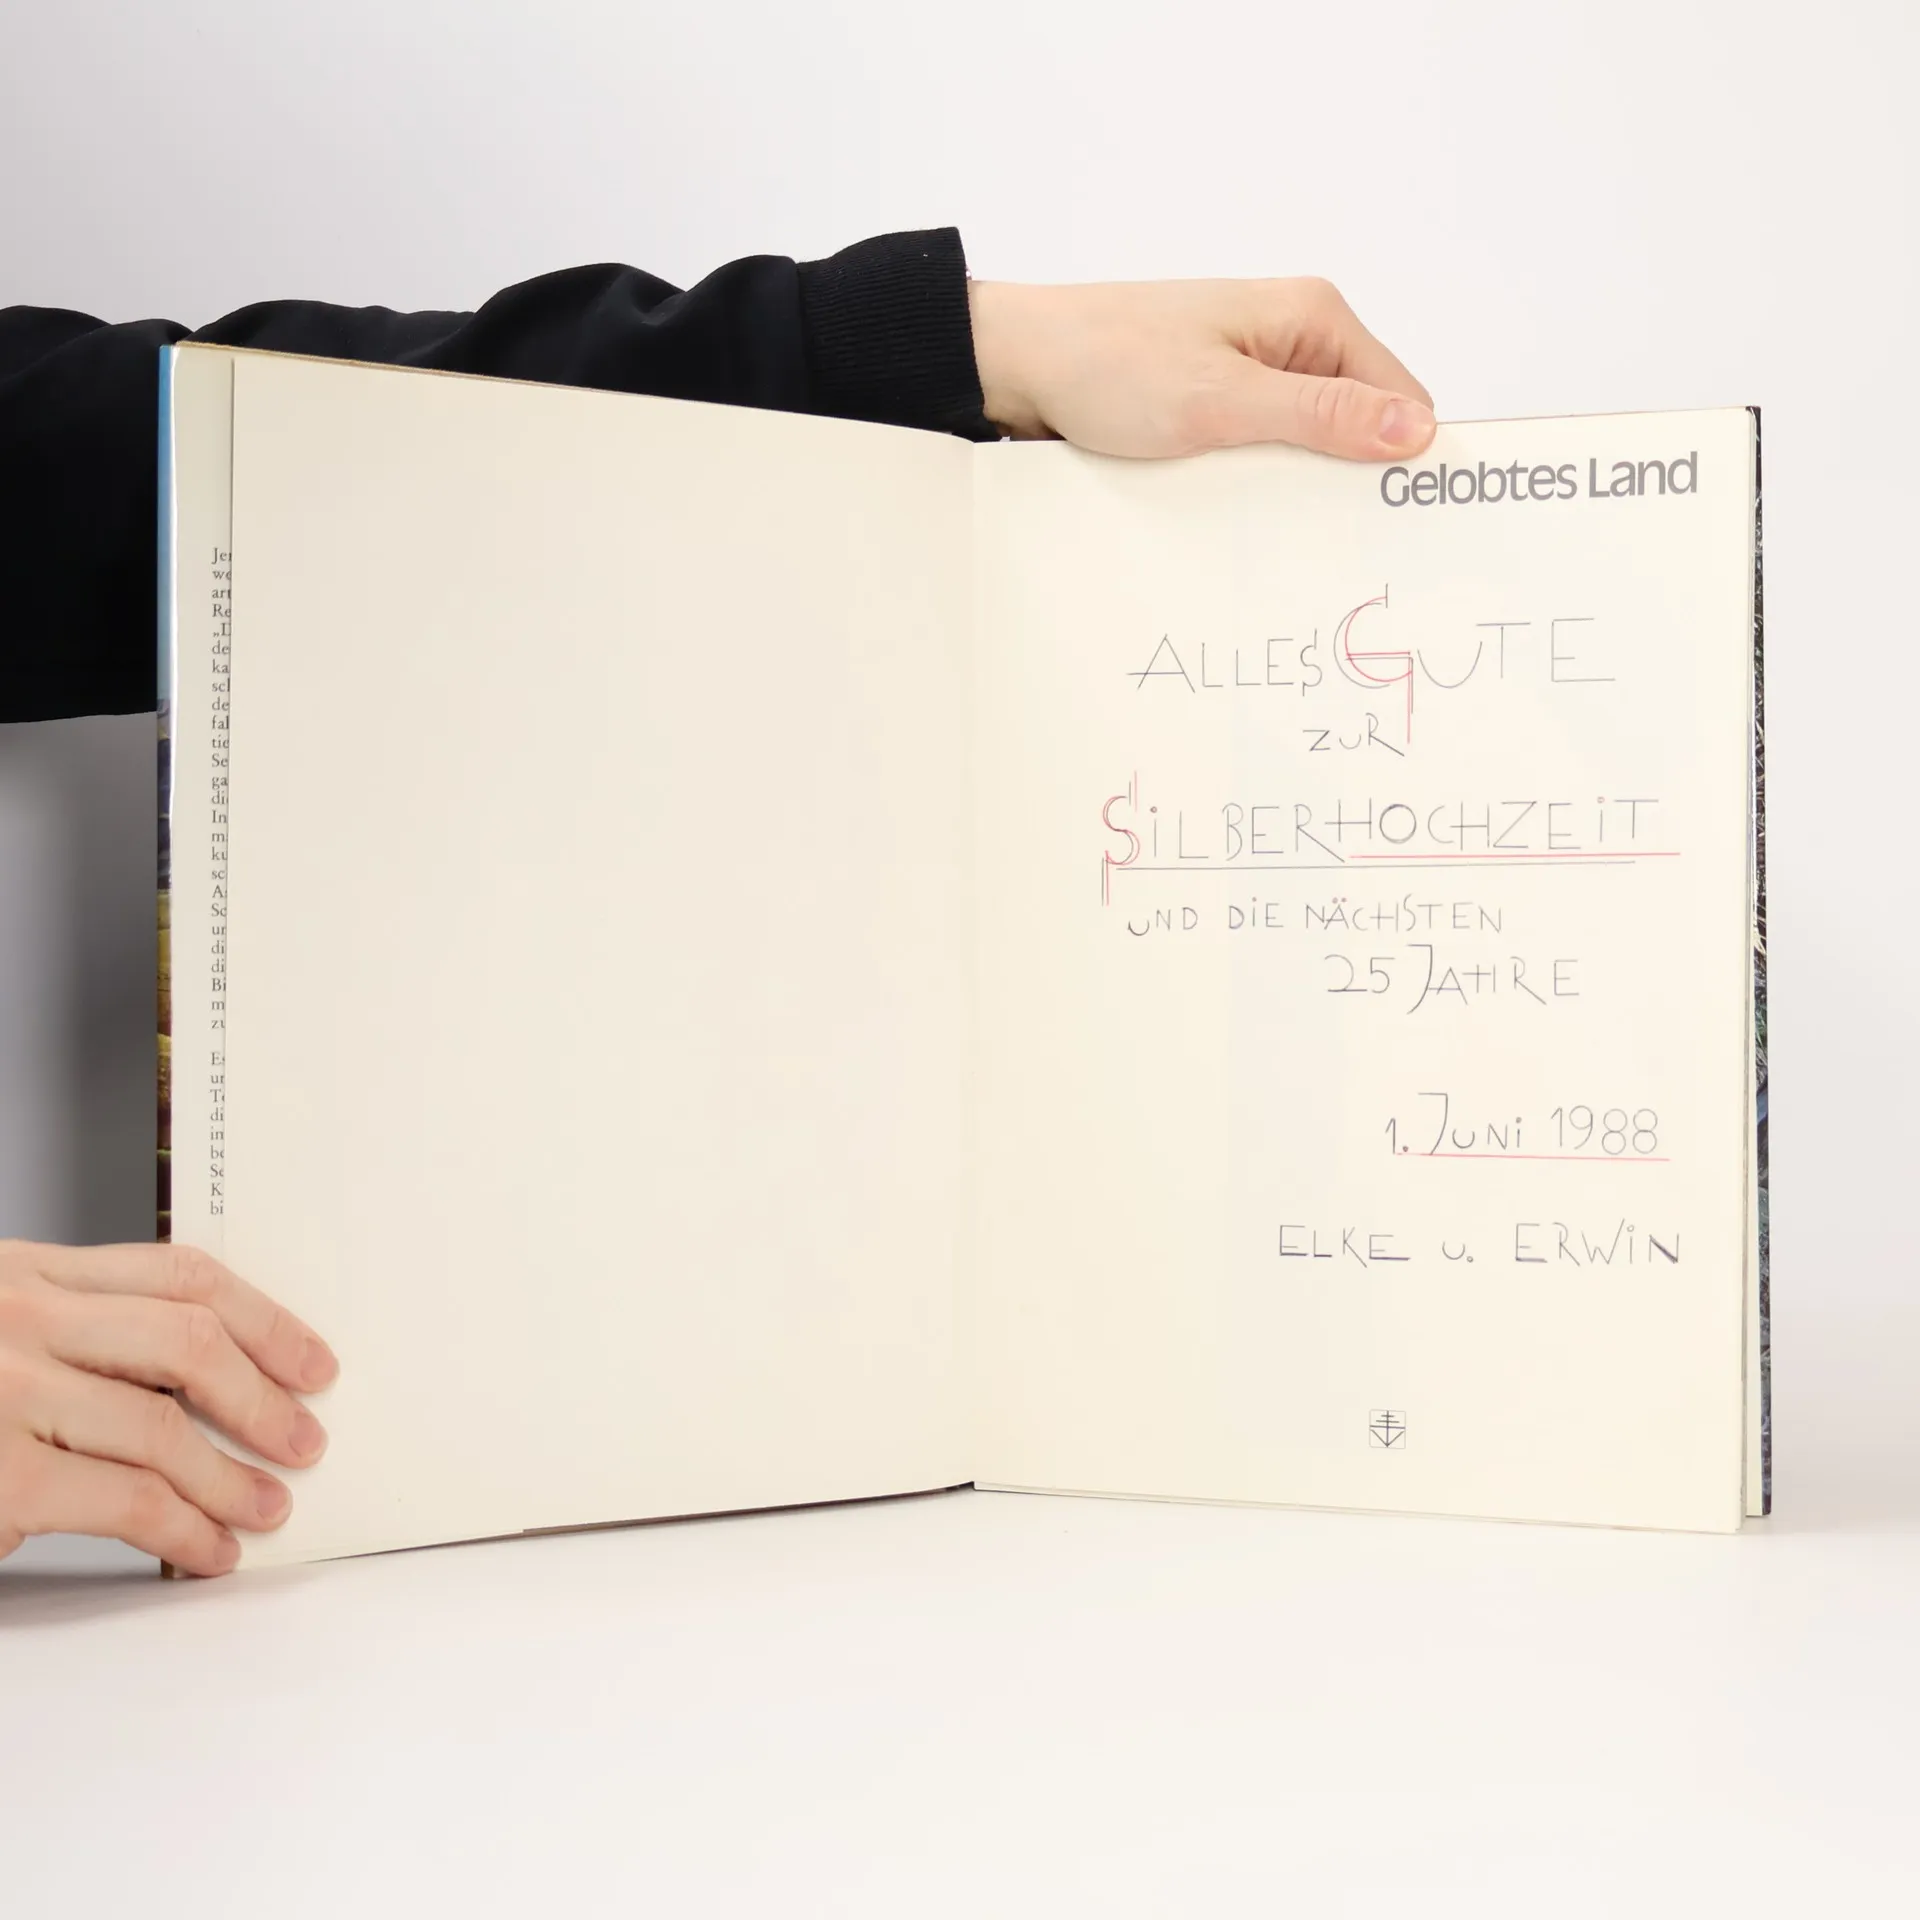 Gelobtes Land
ALLES GUTE
ZUR
SILBERHOCHZEIT
UND DIE NÄCHSTEN
25 JAHRE
1. JUNI 1988
ELKE u. ERWIN